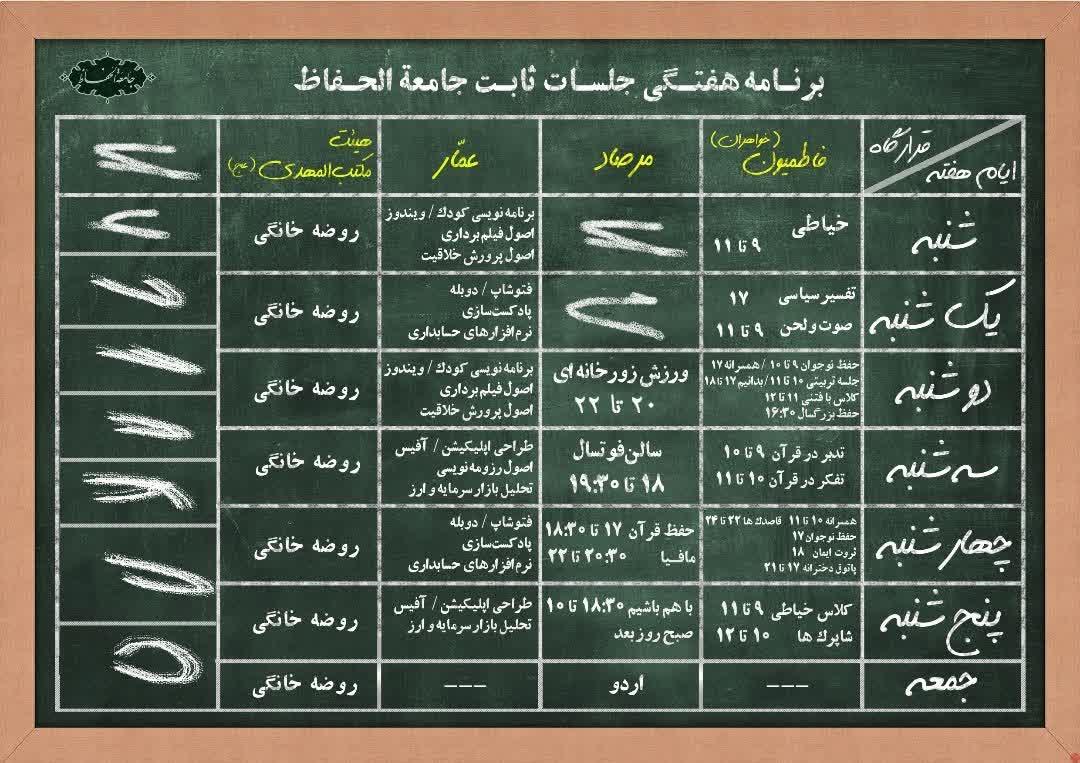 جامعةالحفاظ
برنامه هفتگی جلسات ثابت جامعة الحفاظ
قرارگاه
ایام هفته
فاطمیون (خواهران)
مرصاد
عمّار
هیئت
مکتب المهدی (عج)
شنبه
خیاطی
۹ تا ۱۱
برنامه نویسی کودک / ویندوز
اصول فیلم برداری
اصول پرورش خلاقیت
روضه خانگی
یک شنبه
تفسیر سیاسی ۱۷
صوت و لحن ۹ تا ۱۱
فتوشاپ / دوبله
پادکست‌سازی
نرم‌افزارهای حسابداری
روضه خانگی
دوشنبه
حفظ نوجوان ۹ تا ۱۰ / همسرانه ۱۷
جلسه تربیتی ۱۰ تا ۱۱ / بدانیم ۱۷ تا ۱۸
کلاس بافتنی ۱۱ تا ۱۲
حفظ بزرگسال ۱۶:۳۰
ورزش زورخانه ای
۲۰ تا ۲۲
برنامه نویسی کودک / ویندوز
اصول فیلم برداری
اصول پرورش خلاقیت
روضه خانگی
سه شنبه
تدبر در قرآن ۹ تا ۱۰
تفکر در قرآن ۱۰ تا ۱۱
سالن فوتسال
۱۸ تا ۱۹:۳۰
طراحی اپلیکیشن / آفیس
اصول رزومه نویسی
تحلیل بازار سرمایه و ارز
روضه خانگی
چهارشنبه
همسرانه ۱۰ تا ۱۱ قاصدک ها ۲۲ تا ۲۴
حفظ نوجوان ۱۷
ثروت ایمان ۱۸
پاتوق دخترانه ۱۷ تا ۲۱
حفظ قرآن ۱۷ تا ۱۸:۳۰
مافیا ۲۰:۳۰ تا ۲۲
فتوشاپ / دوبله
پادکست‌سازی
نرم‌افزارهای حسابداری
روضه خانگی
پنج شنبه
کلاس خیاطی ۹ تا ۱۱
شاپرک ها ۱۰ تا ۱۲
با هم باشیم ۱۸:۳۰ تا ۱۰
صبح روز بعد
طراحی اپلیکیشن / آفیس
تحلیل بازار سرمایه و ارز
روضه خانگی
جمعه
---
اردو
---
روضه خانگی